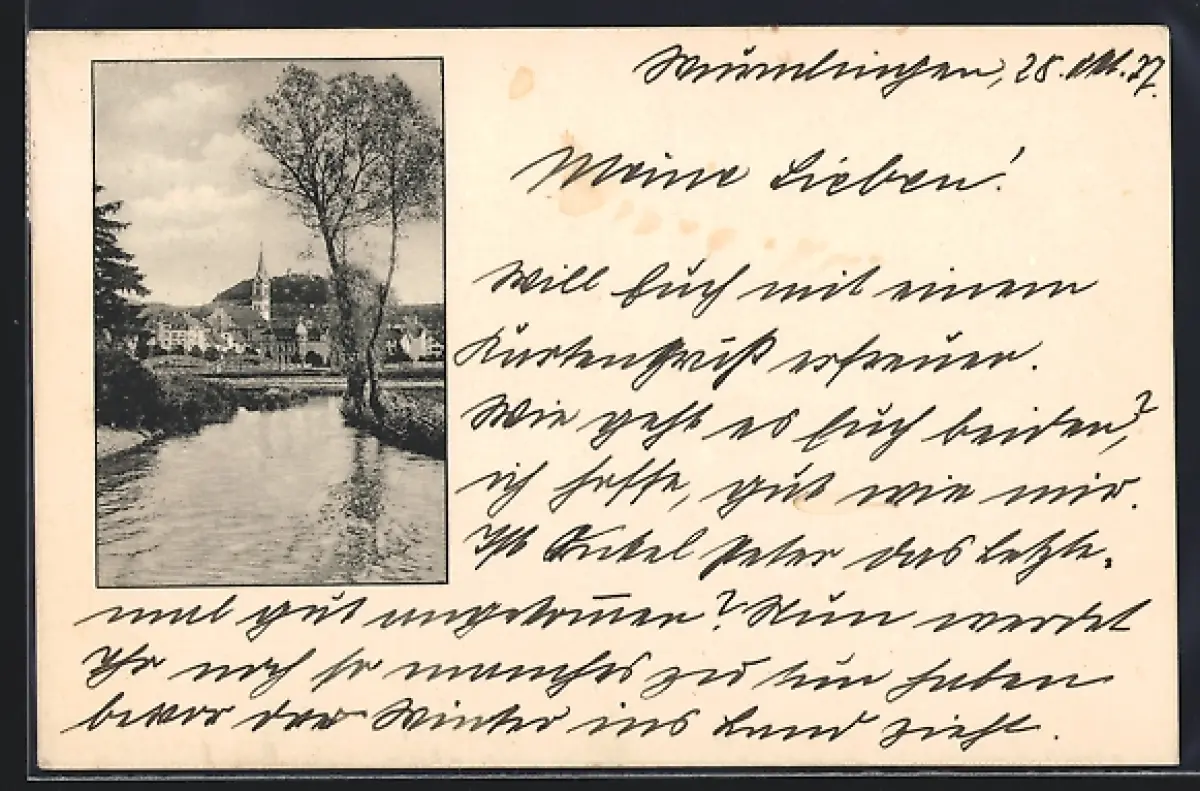 Wurmlingen, 28. Okt. 37.
Meine Lieben!
Will Euch mit einem
Kartengruß erfreuen.
Wie geht es Euch beiden?
ich hoffe, gut wie mir.
Ist Onkel Peter das letzte-
mal gut angekom̄en? Nun werdet
Ihr noch so manches zu tun haben
bevor der Winter ins Land zieht.